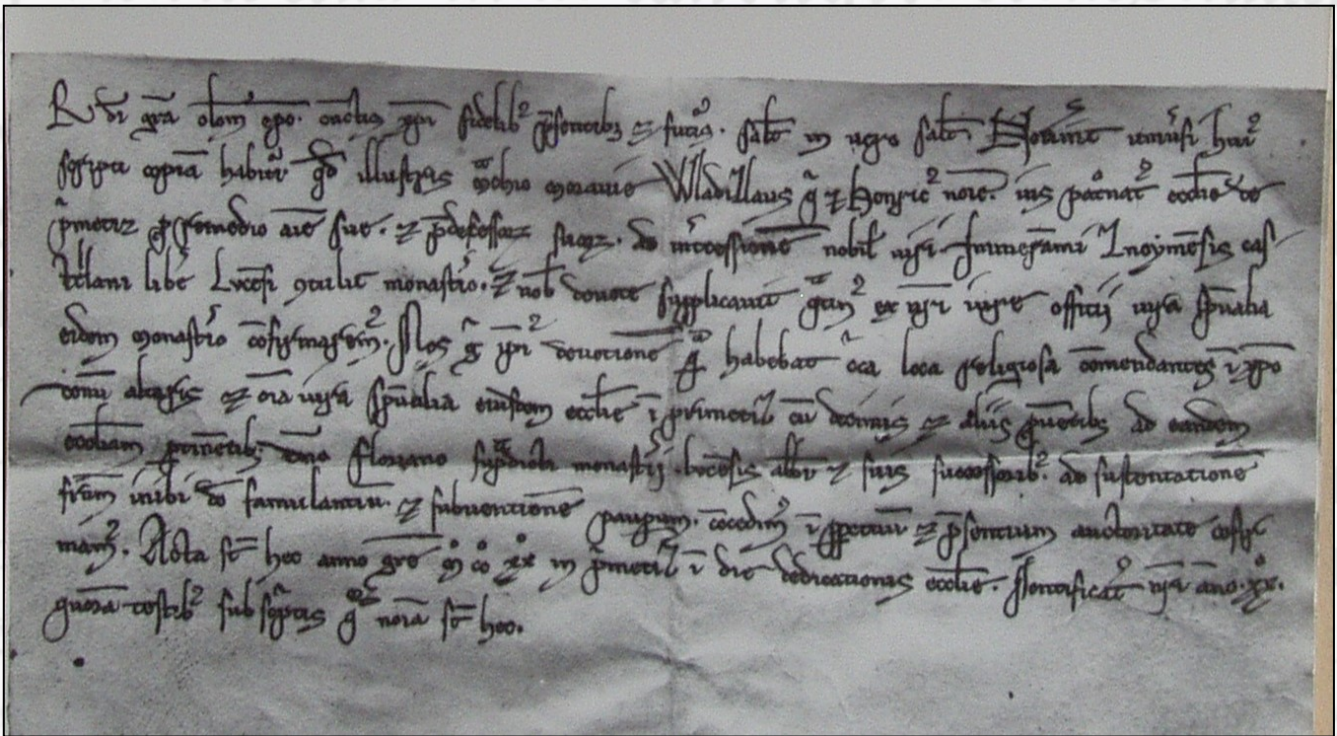 R di gra olom epo. omibus xpi fidelib9 psentibz et futis. salt in vero salti. Noverint univsi huiu9
scripti copia habitur qd illustris mchio moravie Wladizlaus q et Henric9 noie. ius patnat9 ecclie de
pmetiz p remedio aie sue. et pdecessorz suorz. de intcessione nobil viri Immerami Znoymensis cas
tellani libe Lucesi contulit monastio. et nob devote supplicavit qtin9 ex nri iure officii iura spualia
eidem monastio cofirmarem9. Nos g pii9 devotione qm habebat cca loca religiosa comendantes i xpo
donu altaris et oia iura spualia eiusdem ecclie i primetiz cu decimis et aliis pventibz ad eandem
eccliam ptinetibz. dno Floriano supdicti monastii lucesis abbi et suis successorib9. ad sustentatione
frum inibi do famulantiu. et subventione paupum. cocedim9 i ppetuu et psentium auctoritate cofir
mam9. Acta st hec anno gre m co xx in pmetiz i die dedicationis ecclie. Pontificat9 nri ano. xx.
quorda testib9 subscptis q noia st hec.